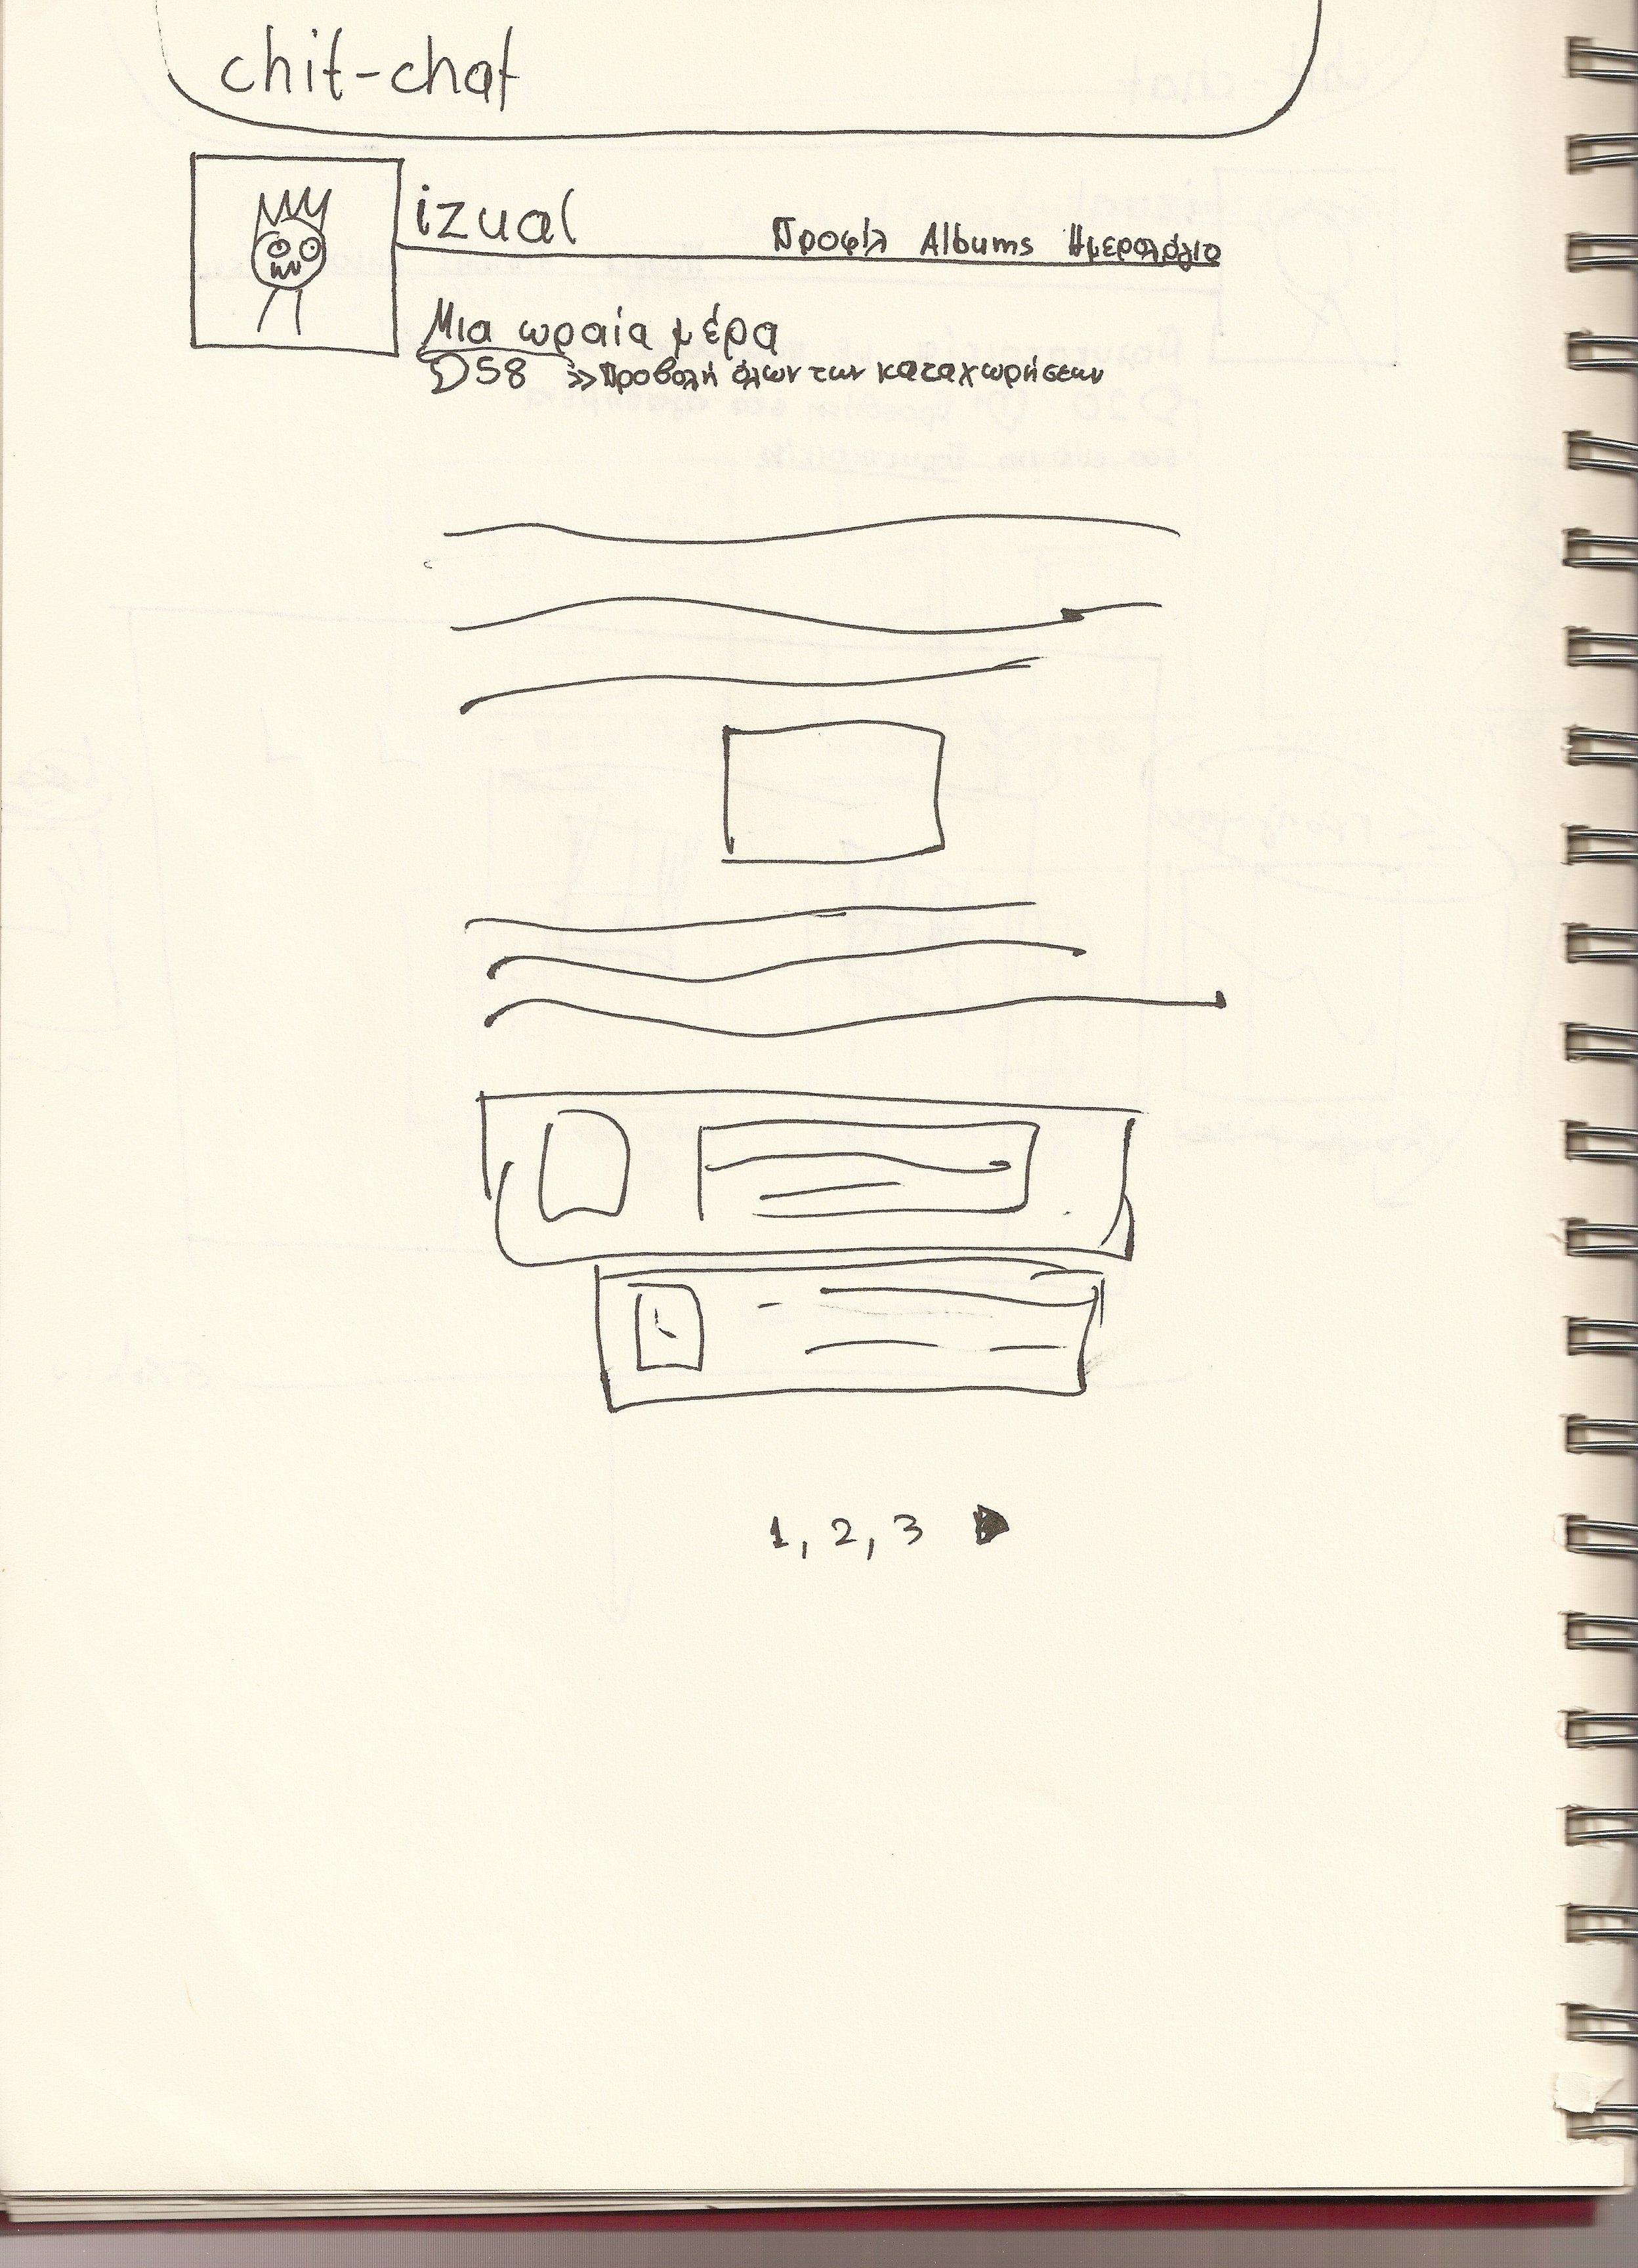 chit-chat
izual
Προφίλ Albums Ημερολόγιο
Μια ωραία μέρα
58 >> Προβολή όλων των καταχωρήσεων
1, 2, 3